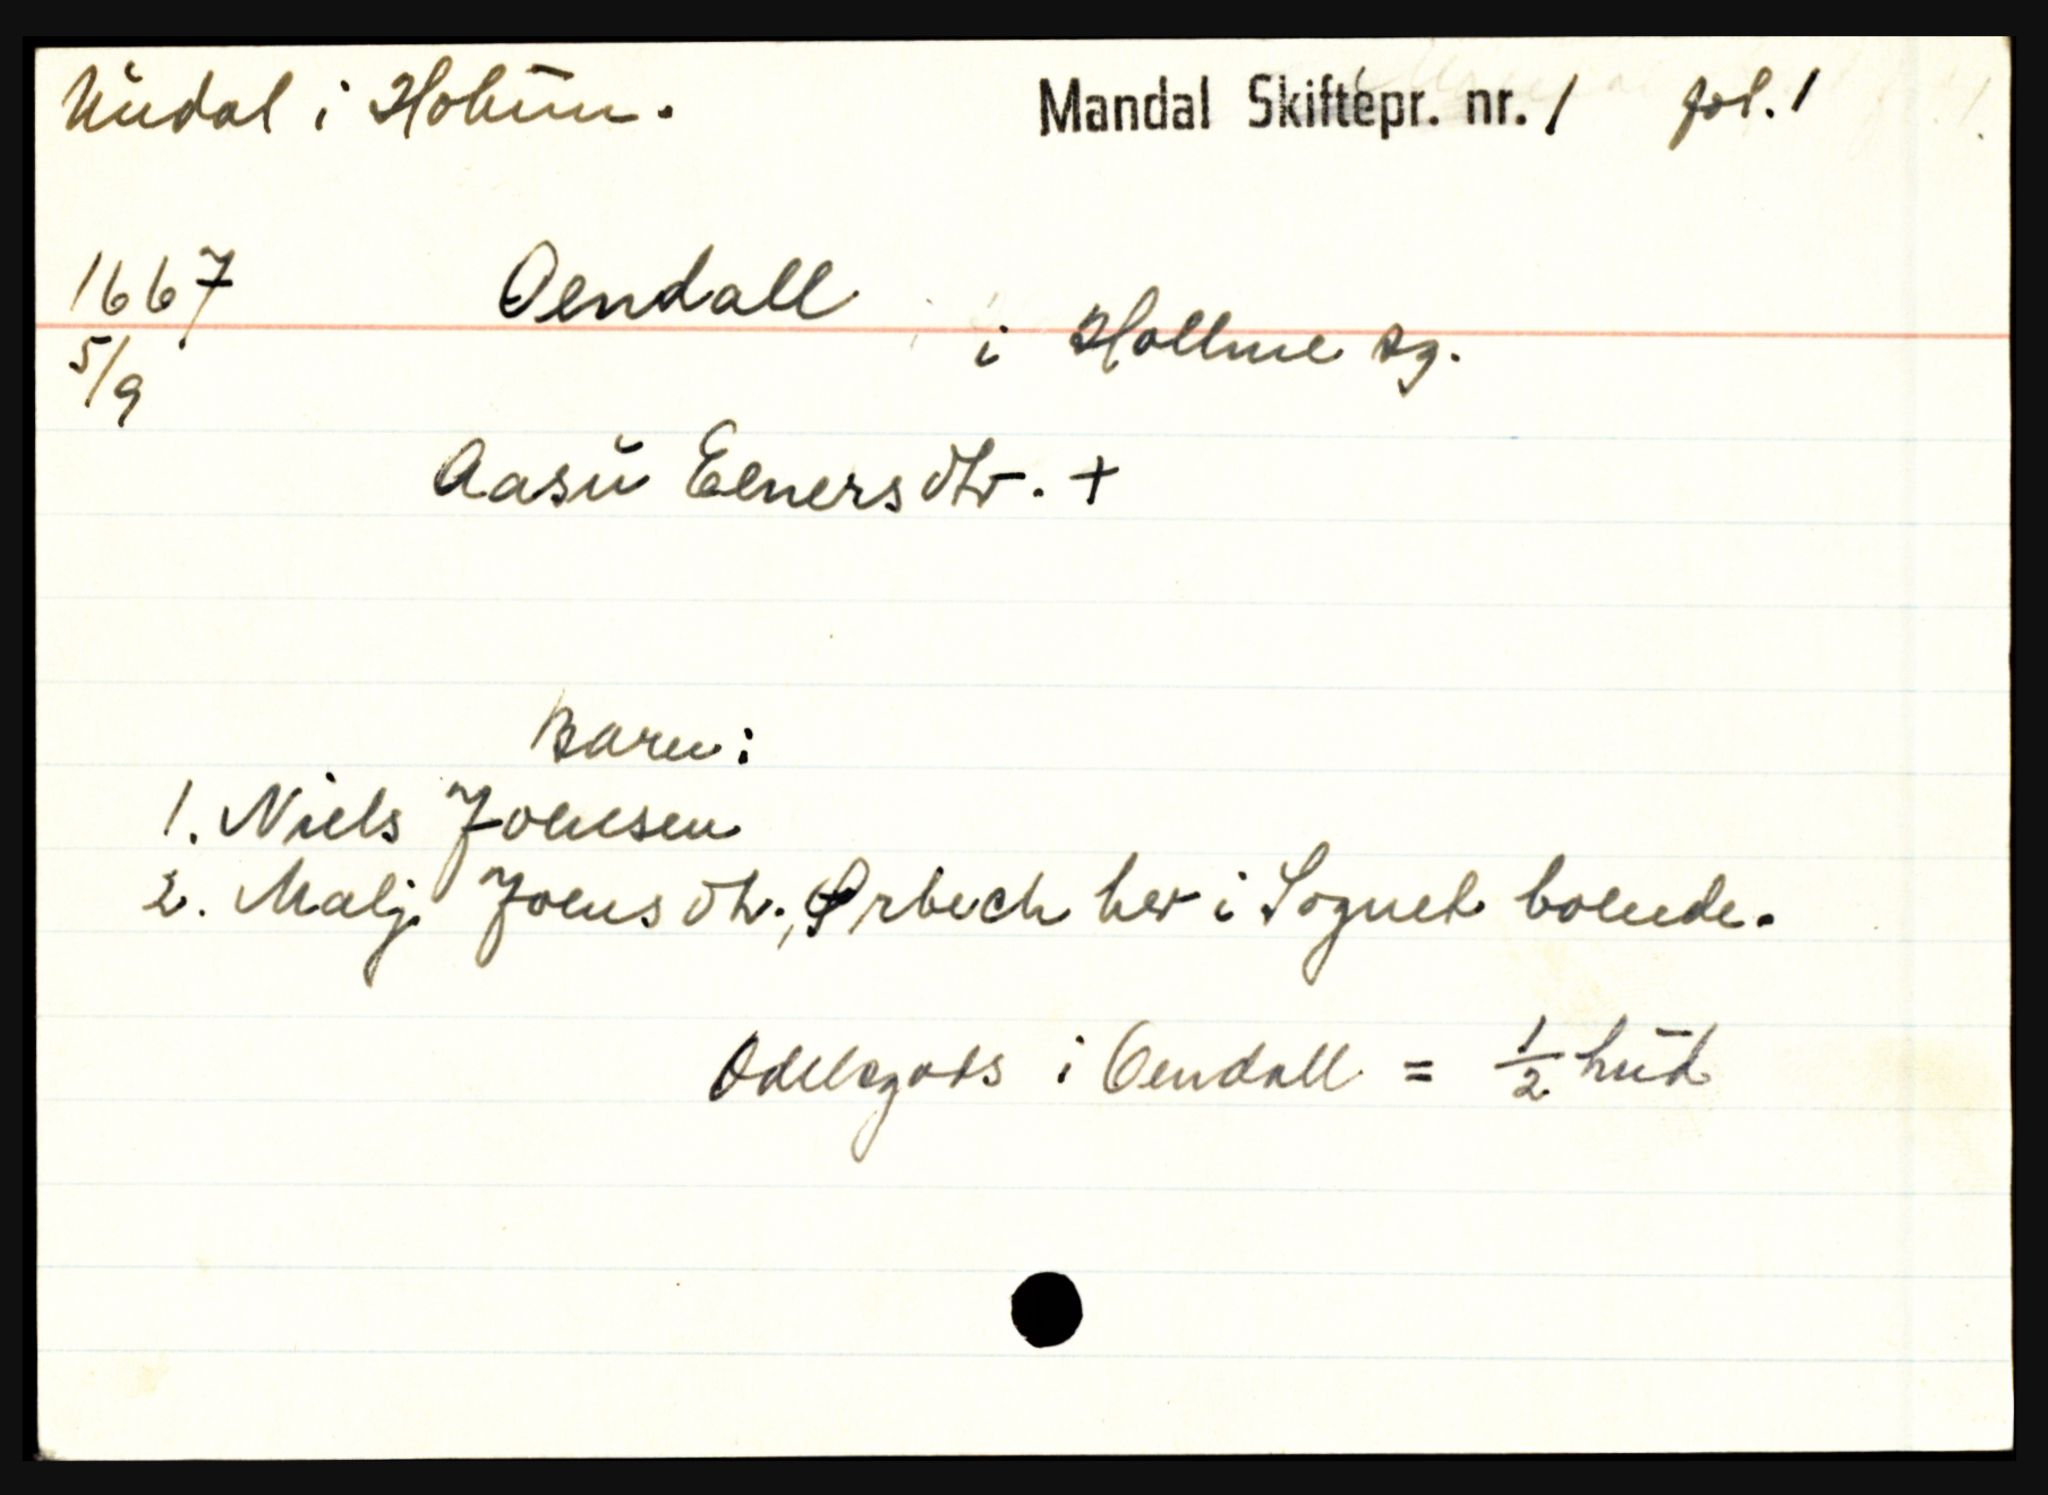 Undal i Holum. Mandal Skiftepr. nr. 1 fol. 1
1667 Oendall i Hollme sg.
5/9
Aasu Eenersdtr. +
Barn:
1. Niels Joensen
2. Malj Joensdtr., Ørbech her i Sognet boende.
Odelsgods i Oendall = 1/2 hud